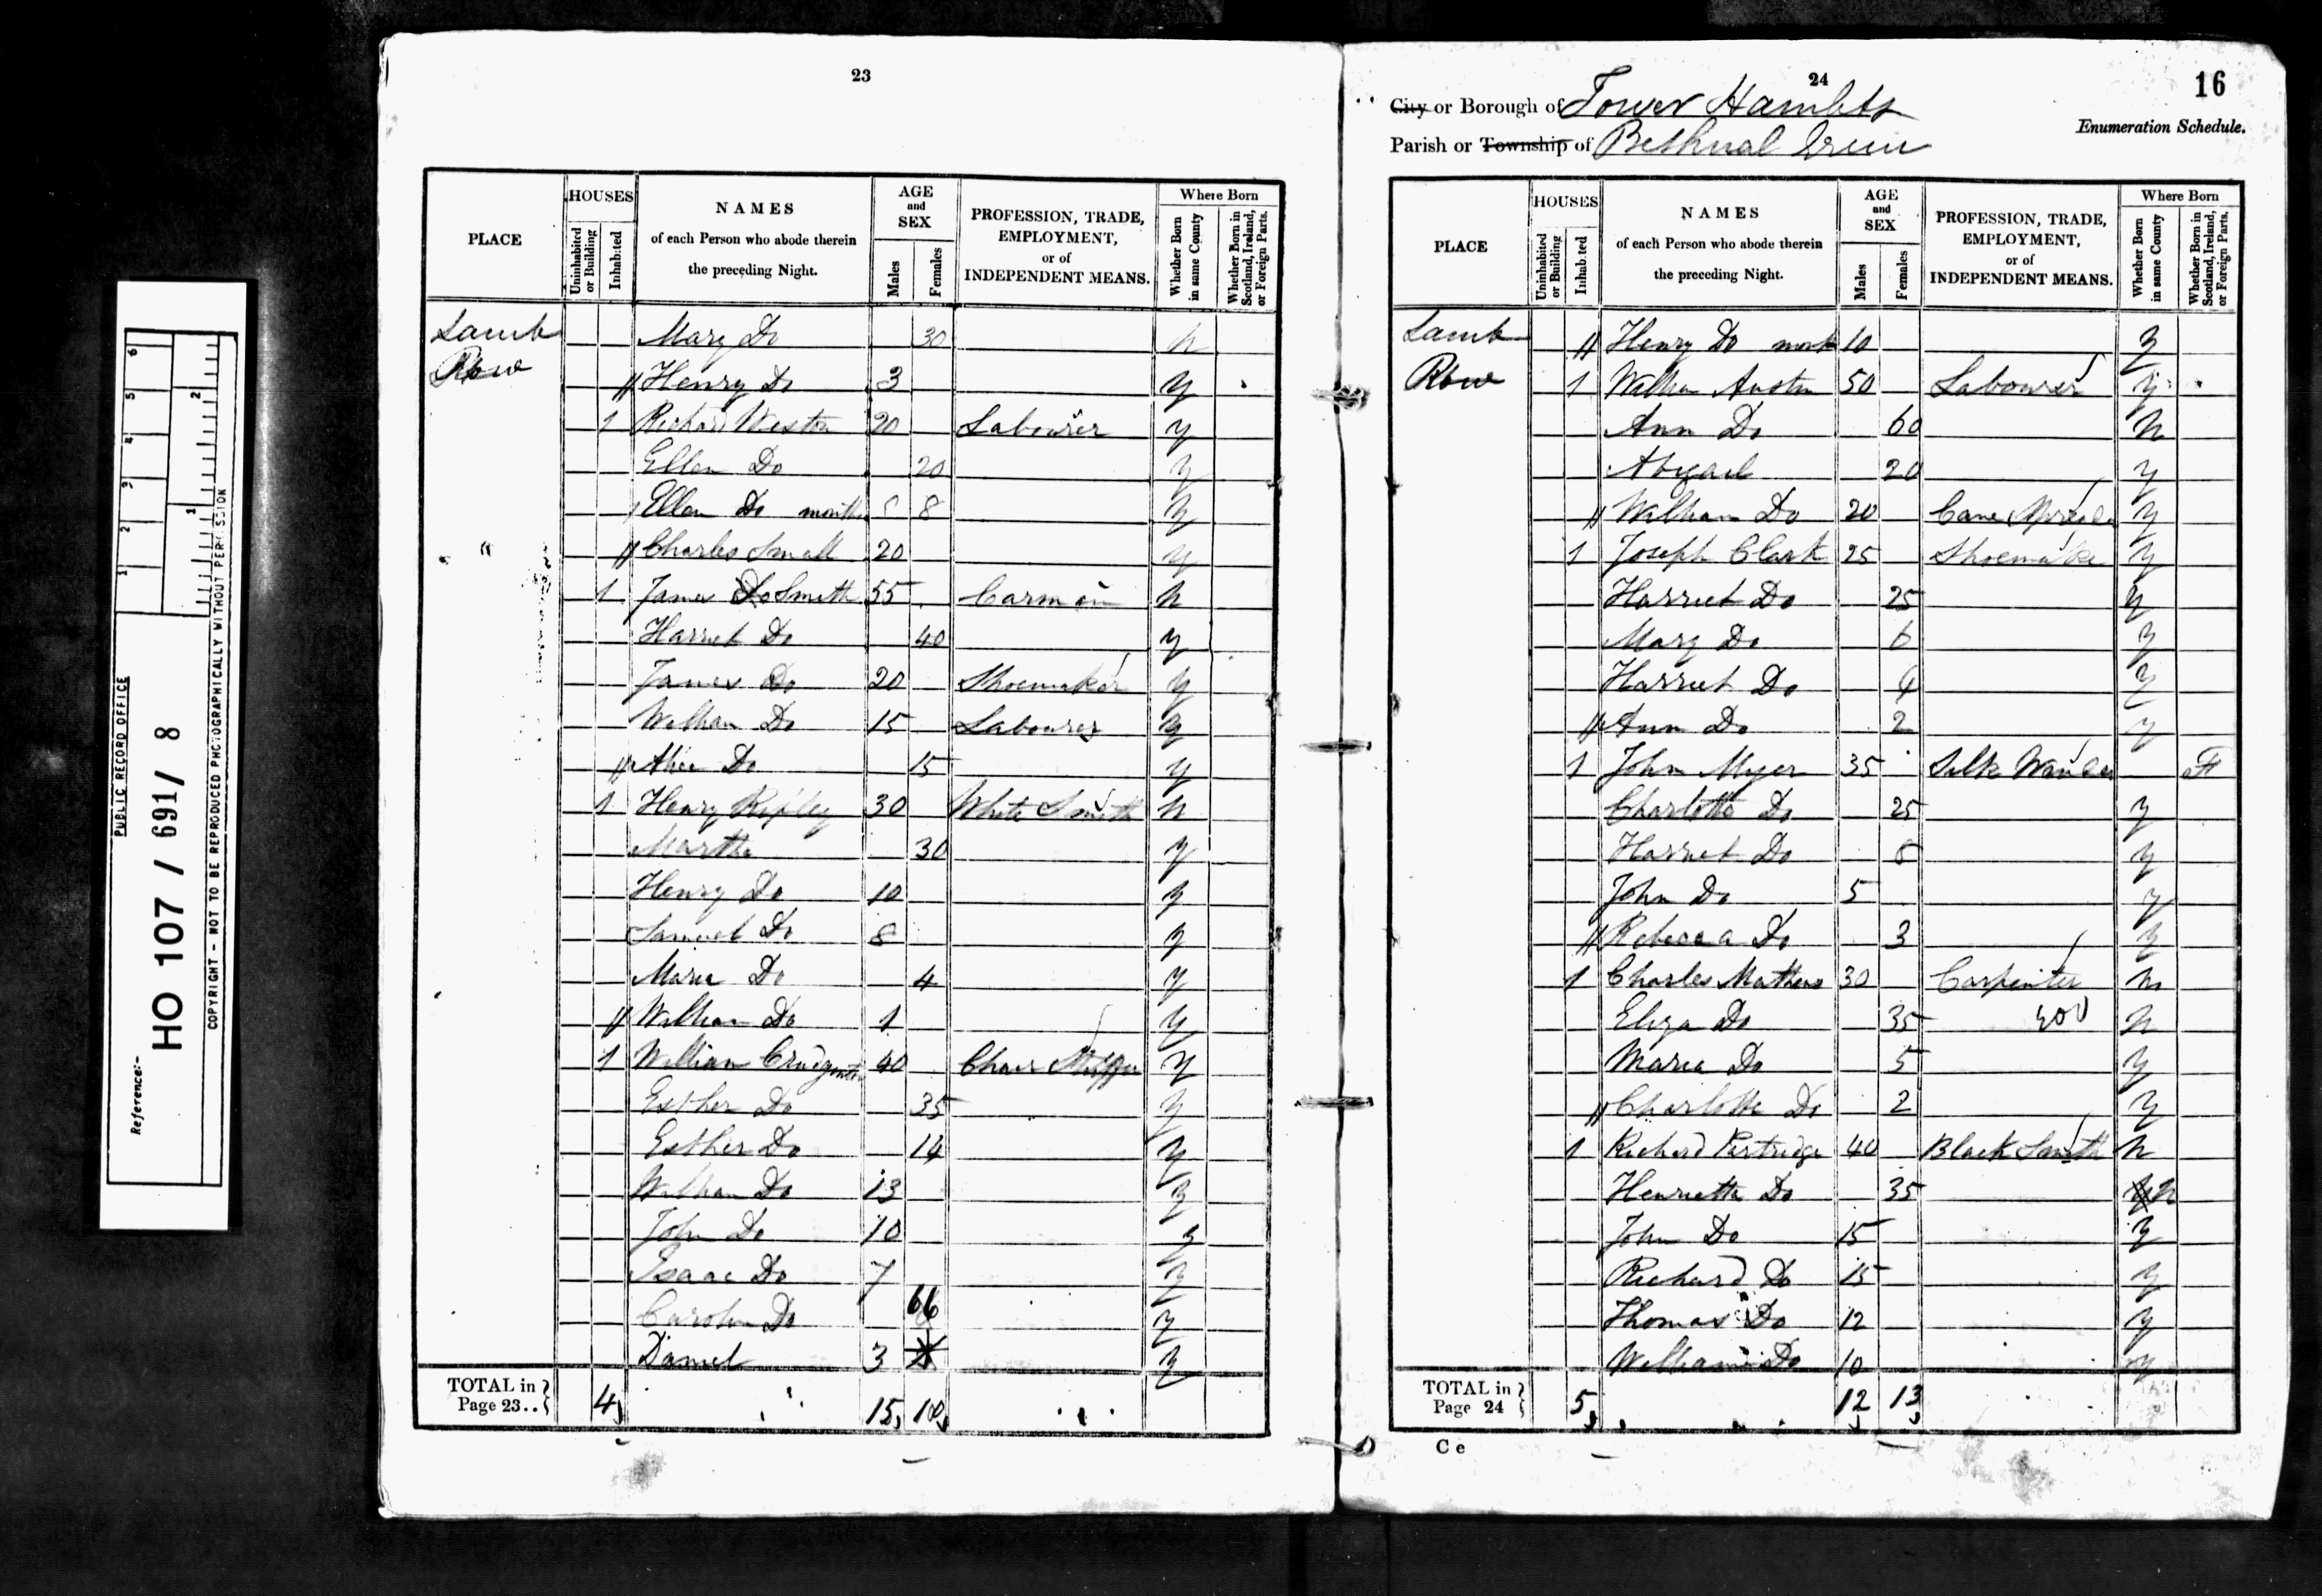 23
PLACE
HOUSES
Uninhabited or Building
Inhabited
NAMES
of each Person who abode therein
the preceding Night.
AGE
and
SEX
Males
Females
PROFESSION, TRADE,
EMPLOYMENT,
or of
INDEPENDENT MEANS.
Where Born
Whether Born in same County
Whether Born in Scotland, Ireland, or Foreign Parts.
Lamb Mary Do 30 n
Row Henry Do 3 y
1 Richard Weston 20 Labourer y
Ellen Do 20 y
Ellen Do months 8 y
" Charles Small 20 y
1 James Do Smith 55 Carman n
Harriet Do 40 y
James Do 20 Shoemaker y
William Do 15 Labourer y
Alice Do 15 y
1 Henry Ripley 30 White Smith n
Martha 30 y
Henry Do 10 y
Samuel Do 8 y
Maria Do 4 y
William Do 1 y
1 William 40 Chair y
Esther Do 35 y
Esther Do 14 y
William Do 13 y
John Do 10 y
Isaac Do 7 y
Caroline Do 6 y
Daniel 3 y
TOTAL in
Page 23.. 4 15 10
24
16
City or Borough of Tower Hamlets
Enumeration Schedule.
Parish or Township of Bethnal Green
PLACE
HOUSES
Uninhabited or Building
Inhabited
NAMES
of each Person who abode therein
the preceding Night.
AGE
and
SEX
Males
Females
PROFESSION, TRADE,
EMPLOYMENT,
or of
INDEPENDENT MEANS.
Where Born
Whether Born in same County
Whether Born in Scotland, Ireland, or Foreign Parts.
Lamb Henry Do 10 y
Row 1 William Austin 50 Labourer y
Ann Do 60 n
Abigail 20 y
William Do 20 Cane y
1 Joseph Clark 25 Shoemaker y
Harriet Do 25 y
Mary Do 6 y
Harriet Do 4 y
Ann Do 2 y
1 John Myer 35 Silk F
Charlotte Do 25 y
Harriet Do 8 y
John Do 5 y
Rebecca Do 3 y
1 Charles Mathews 30 Carpenter n
Eliza Do 35 n
Maria Do 5 y
Charlotte Do 2 y
1 Richard Partridge 40 Black Smith n
Henrietta Do 35 n
John Do 15 y
Richard Do 15 y
Thomas Do 12 y
William Do 10 y
TOTAL in
Page 24 5 12 13
C e
PUBLIC RECORD OFFICE
Reference:-
HO 107 / 691 / 8
COPYRIGHT - NOT TO BE REPRODUCED PHOTOGRAPHICALLY WITHOUT PERMISSION
1 2 3 4 5 6
1 2